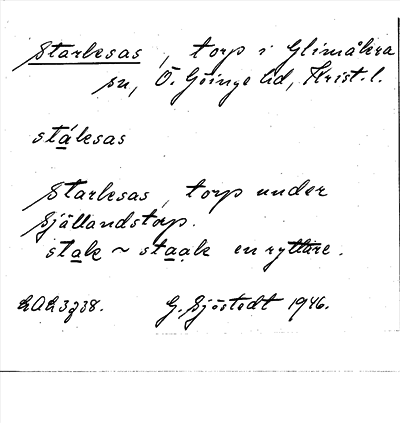 Starksas, torp i Glimåkra
sn, Ö. Göinge hd, Krist. l.
stáksas
Starksas, torp under
Sjállandstorp.
stak ~ staak en ryttare.
G. Sjöstedt 1946.